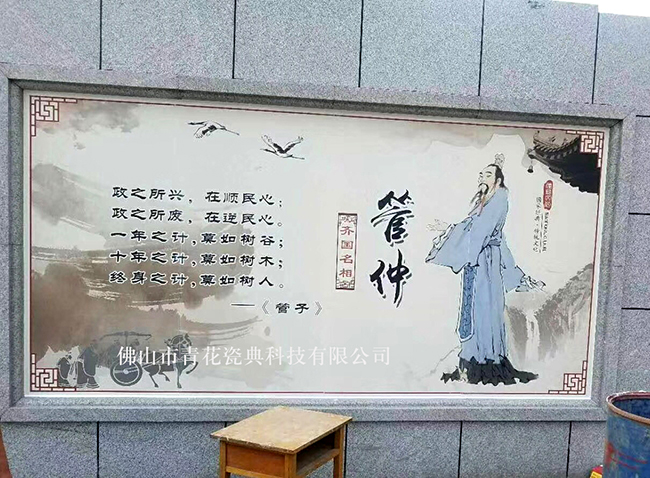 政之所兴，在顺民心；
政之所废，在逆民心。
一年之计，莫如树谷；
十年之计，莫如树木；
终身之计，莫如树人。
——《管子》
齐国名相
管仲
佛山市青花瓷典科技有限公司